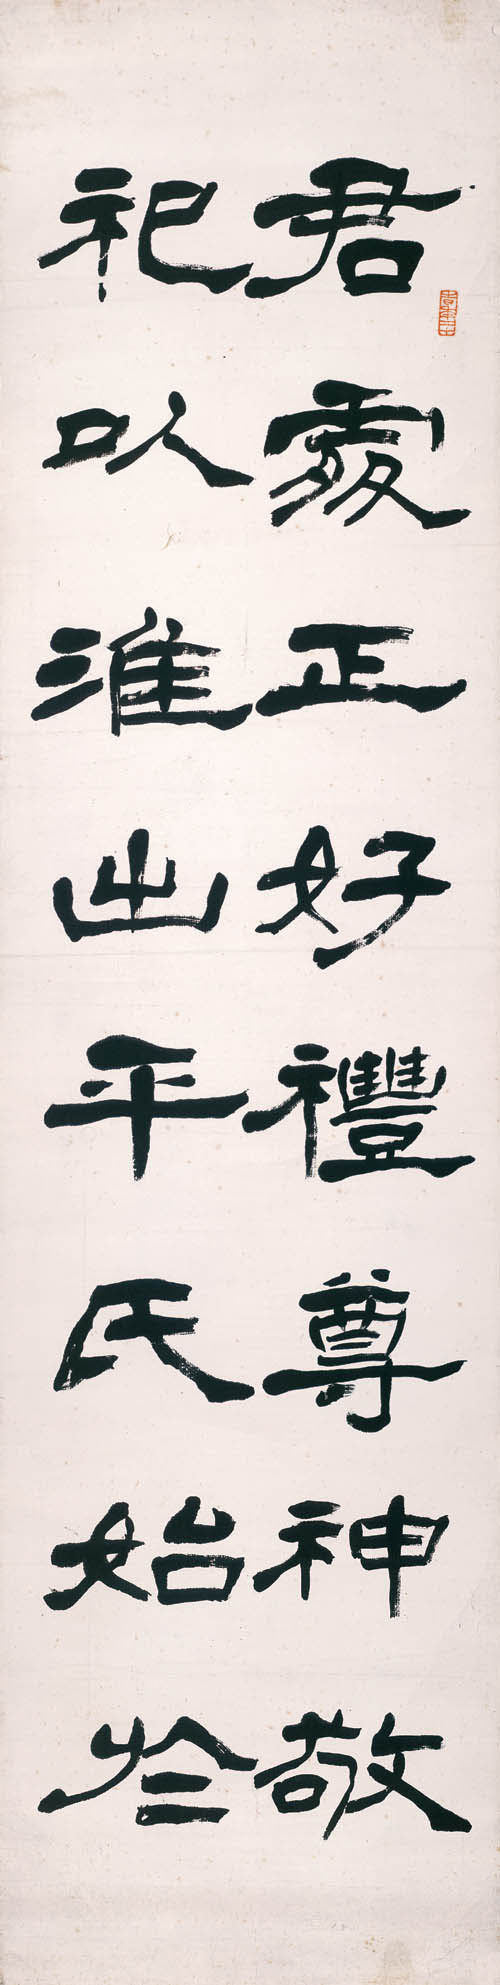 君處正好禮尊神敬
祀以淮出平氏始於